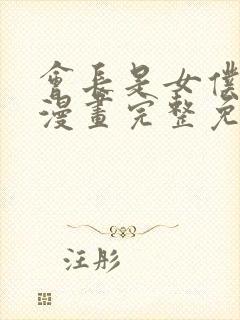 會長是女僕
漫畫完整免
汪彤